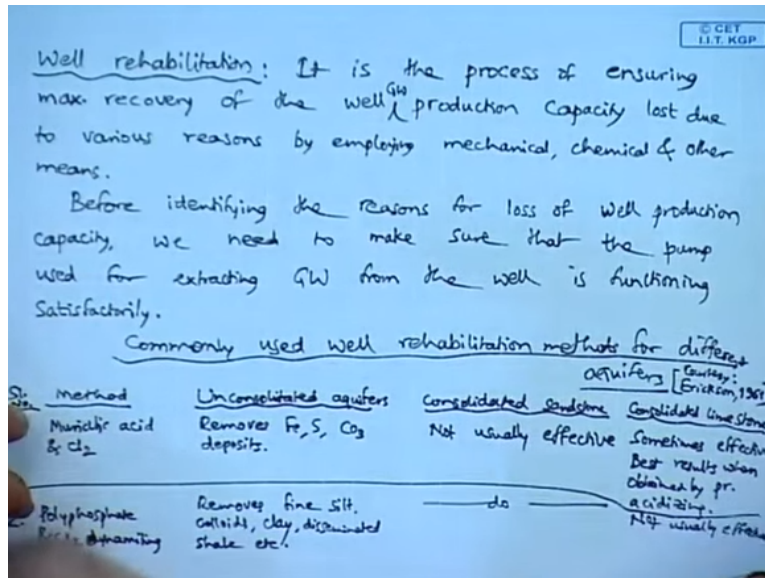 © CET
I.I.T. KGP
Well rehabilitation: It is the process of ensuring
max. recovery of the well GW production capacity lost due
to various reasons by employing mechanical, chemical & other
means.
Before identifying the reasons for loss of well production
capacity, we need to make sure that the pump
used for extracting GW from the well is functioning
satisfactorily.
Commonly used well rehabilitation methods for different
aquifers [Courtesy:
Erickson, 1961
Method Unconsolidated aquifers Consolidated sandstone Consolidated limestone
Muriatic acid Removes Fe, S, CO3 Not usually effective Sometimes effective
& Cl2 deposits. Best results when
obtained by pr.
acidizing.
Polyphosphate Removes fine silt, do Not usually effective
dynamiting colloids, clay, disseminated
shale etc.